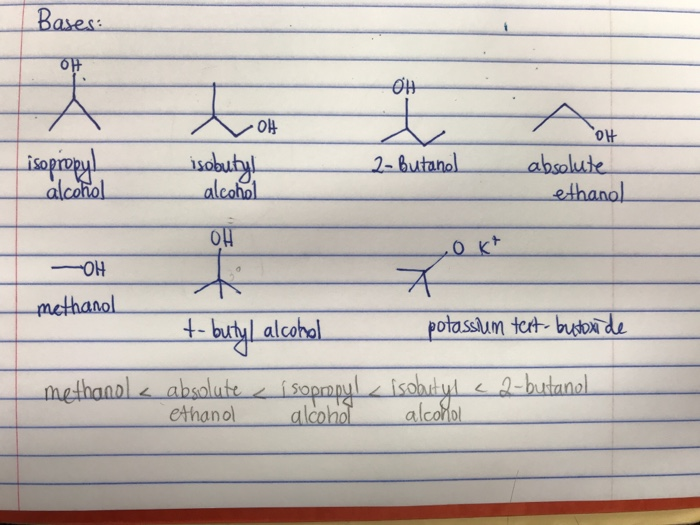 Bases:
OH
OH
OH
OH
isopropyl
alcohol
isobutyl
alcohol
2-Butanol
absolute
ethanol
OH
OH
O K+
methanol
t-butyl alcohol
potassium tert-butoxide
methanol < absolute < isopropyl < isobutyl < 2-butanol
ethanol alcohol alcohol